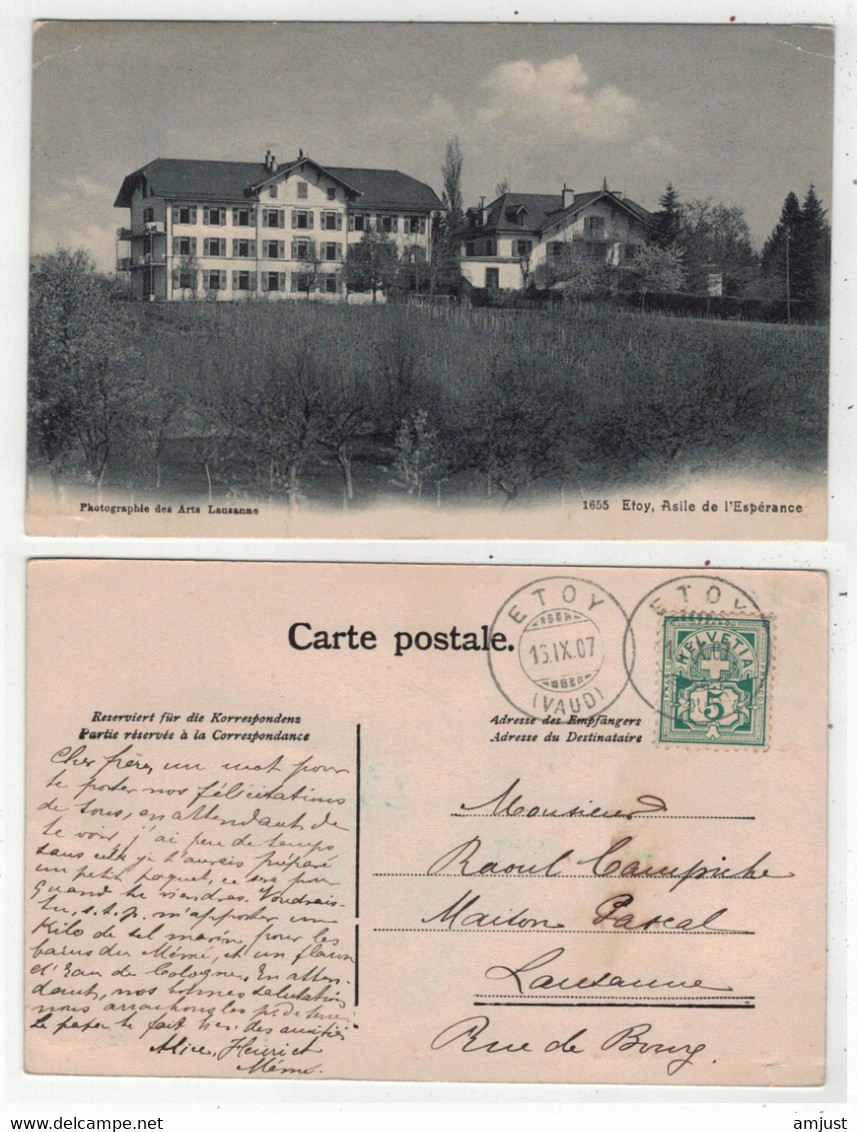 Photographie des Arts Lausanne
1655 Etoy, Asile de l'Espérance
Carte postale.
ETOY
15.IX.07
(VAUD)
ETOY
HELVETIA
5
Reserviert für die Korrespondenz
Partie réservée à la Correspondance
Adresse des Empfängers
Adresse du Destinataire
Cher frère, un mot pour
te porter nos félicitations
de tous, en attendant de
te voir, j'ai peu de temps
sans cela je t'aurais préparé
un petit paquet, ce sera pour
quand tu viendras. Voudrais-
tu, s.t.p. m'apporter un
Kilo de sel marin pour les
bains du Mémé, et un flacon
d'Eau de Cologne. En atten-
dant, nos bonnes salutations
nous arrachons les p. de terre
Le papa te fait bien des amitiés
Alice, Henri et
Mémé.
Monsieur
Raoul Campiche
Maison Pascal
Lausanne
Rue de Bourg.
amjust